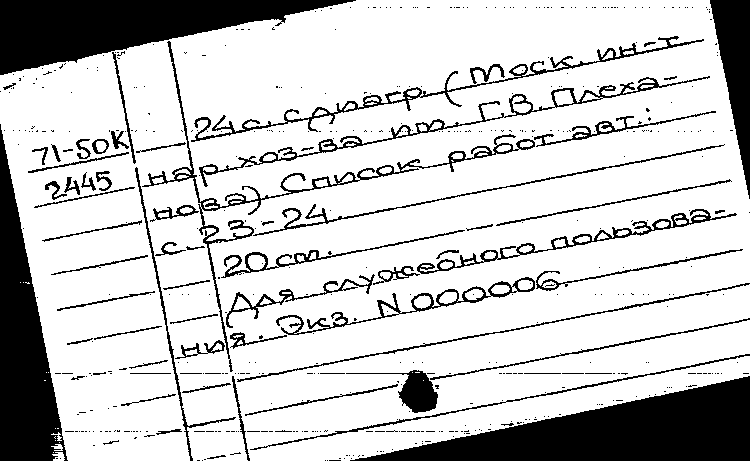 24с. с диагр. (Моск. ин-т
71-50К нар. хоз-ва им. Г.В. Плеха-
2445 нова). Список работ авт.:
с. 23-24.
20 см.
Для служебного пользова-
ния. Экз. N 000006.